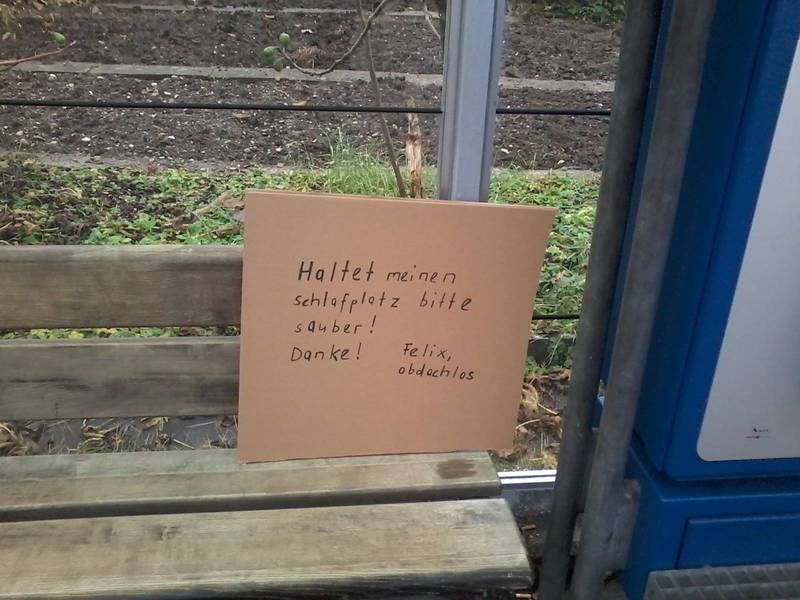 Haltet meinen
schlafplatz bitte
sauber!
Danke! Felix,
obdachlos